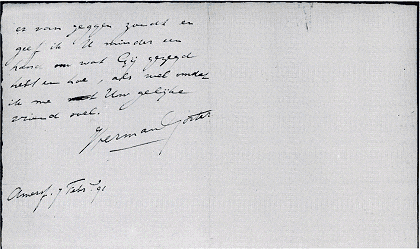 er van zeggen zoudt en
geef ik U minder een
om wat Gij gezegd
hebt en hoe, als wel omdat
ik me met Uw gelijke
vriend voel.
Herman Gorter
Amersf. 7 Febr. 91